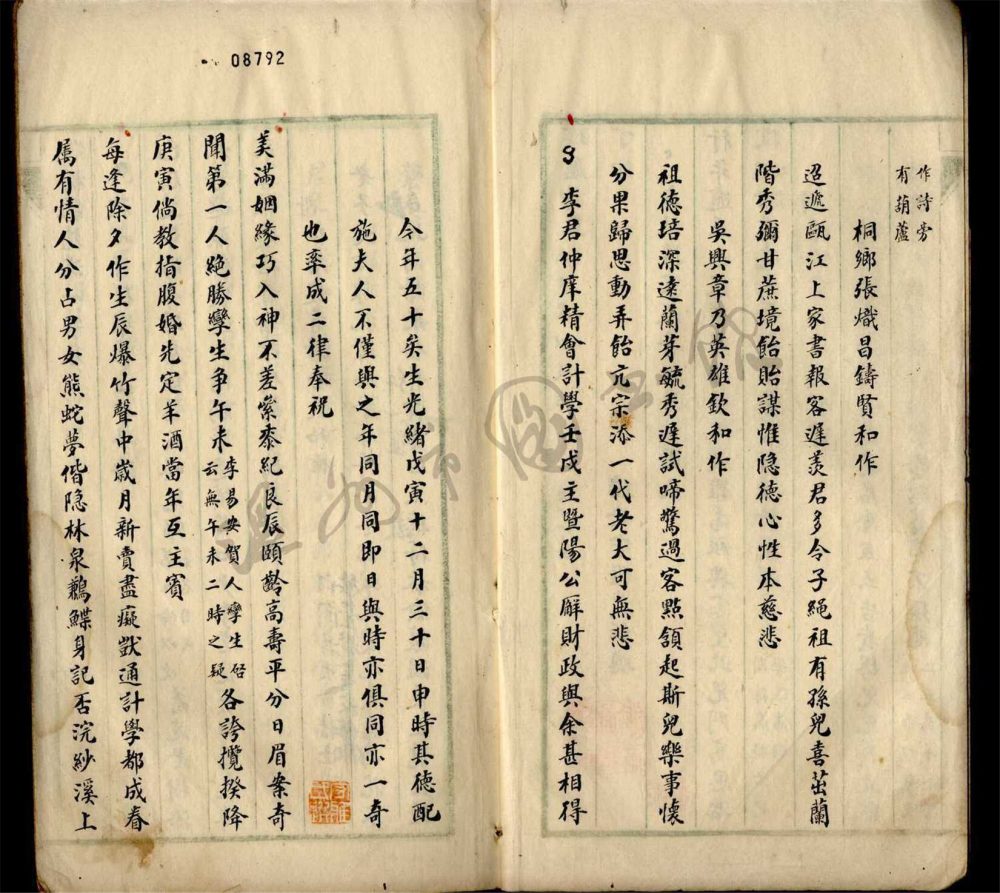 作詩旁
有葫蘆
桐鄉張熾昌鑄賢和作
迢遞甌江上家書報客遲羨君多令子繩祖有孫兒喜茁蘭
階秀彌甘蔗境飴貽謀惟隐德心性本慈悲
吳興章乃英雄欽和作
祖德培深遠蘭芽毓秀遲試啼驚過客點頷起斯兒樂事懷
分果歸思動弄飴亢宗添一代老大可無悲
李君仲庠精會計學壬戌主暨陽公廨財政與余甚相得
08792
今年五十矣生光緒戊寅十二月三十日申時其德配
施夫人不僅與之年同月同即日與時亦俱同亦一奇
也率成二律奉祝
美滿姻緣巧入神不差絫黍紀良辰頤齡高壽平分日眉案奇
聞第一人絶勝孿生争午未李易安賀人孿生啓云無午未二時之疑各誇攬揆降
庚寅倘教指腹婚先定羊酒當年互主賓
每逢除夕作生辰爆竹聲中歲月新賣盡癡獃通計學都成眷
屬有情人分占男女熊蛇夢偕隐林泉鶼鰈身記否浣紗溪上